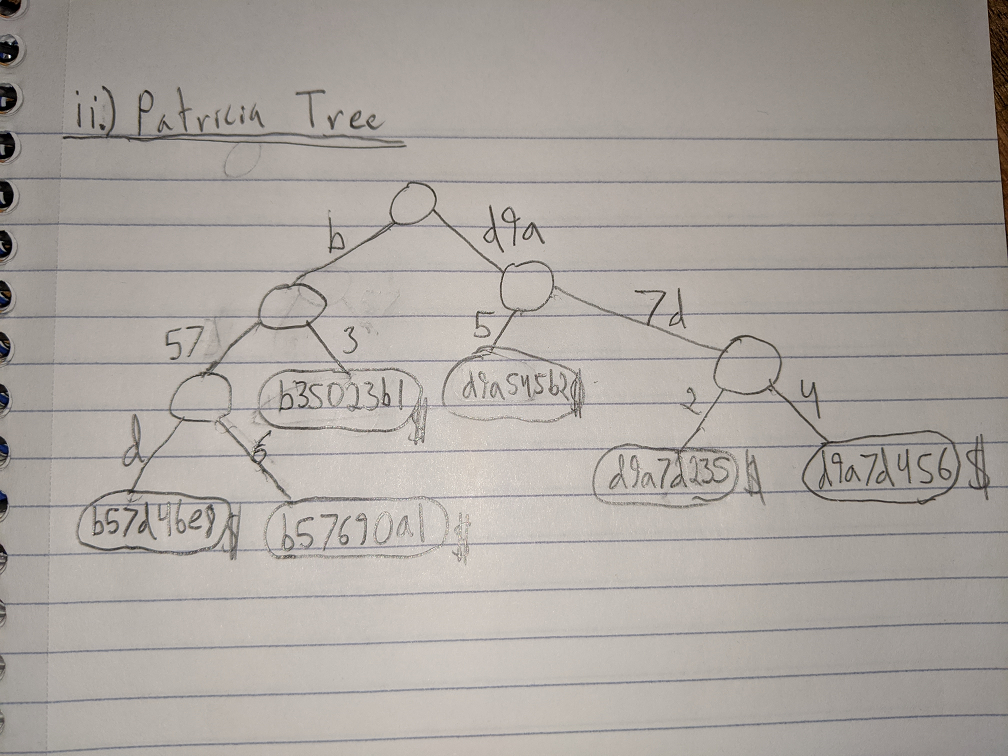 ii.) Patricia Tree
b d9a
57 3 5 7d
b35023b1$ d9a545b2$
d 6 2 4
d9a7d235$ d9a7d456$
b57d46e8$ b57690a1$